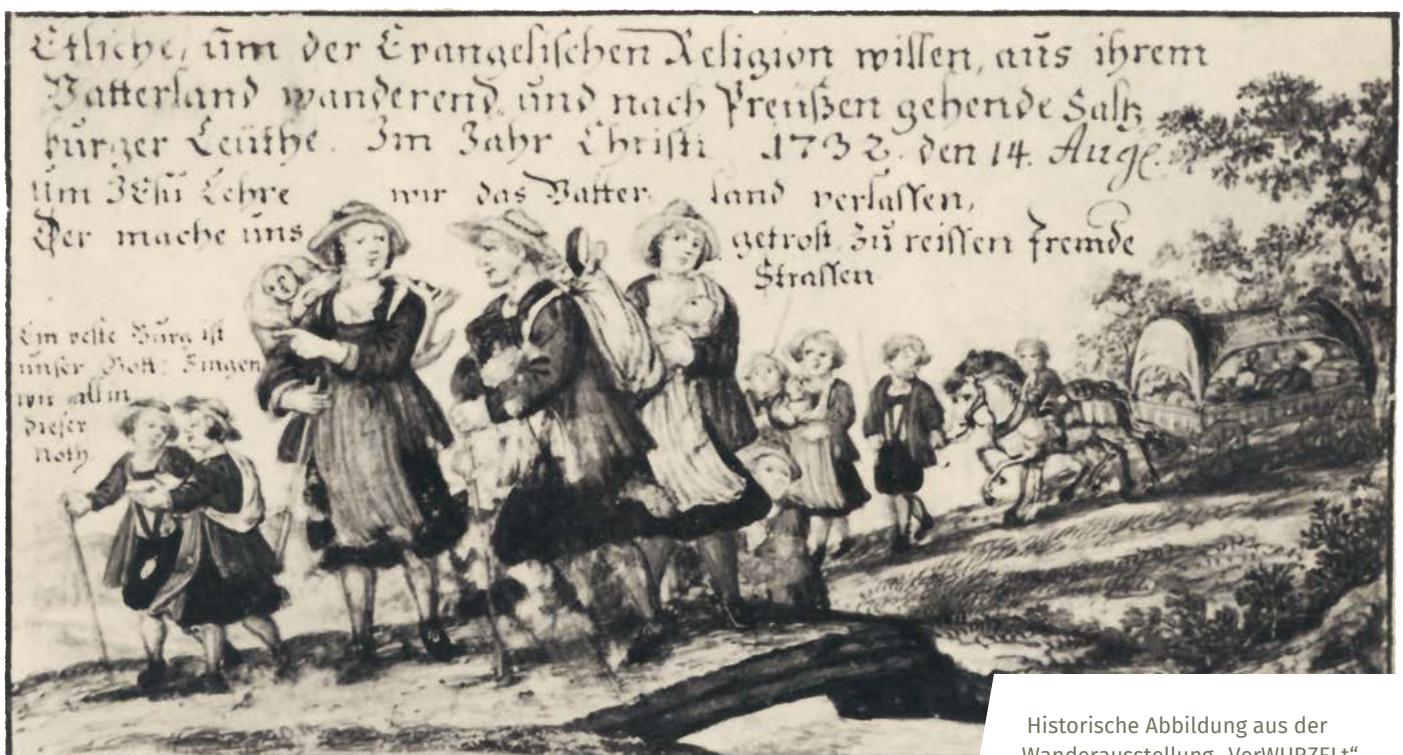 Etliche, um der Evangelischen Religion willen, aus ihrem
Vatterland wanderend, und nach Preußen gehende Saltz
burger Leuthe. Im Jahr Christi 1732. den 14. Aug.
Um JEsu Lehre wir das Vatter land verlassen,
Der mache uns getrost, zu reissen fremde
Strassen
Ein veste Burg ist
unser Gott: Singen
wir all in
dieser
Noth
Historische Abbildung aus der
Wanderausstellung „VerWURZELt“